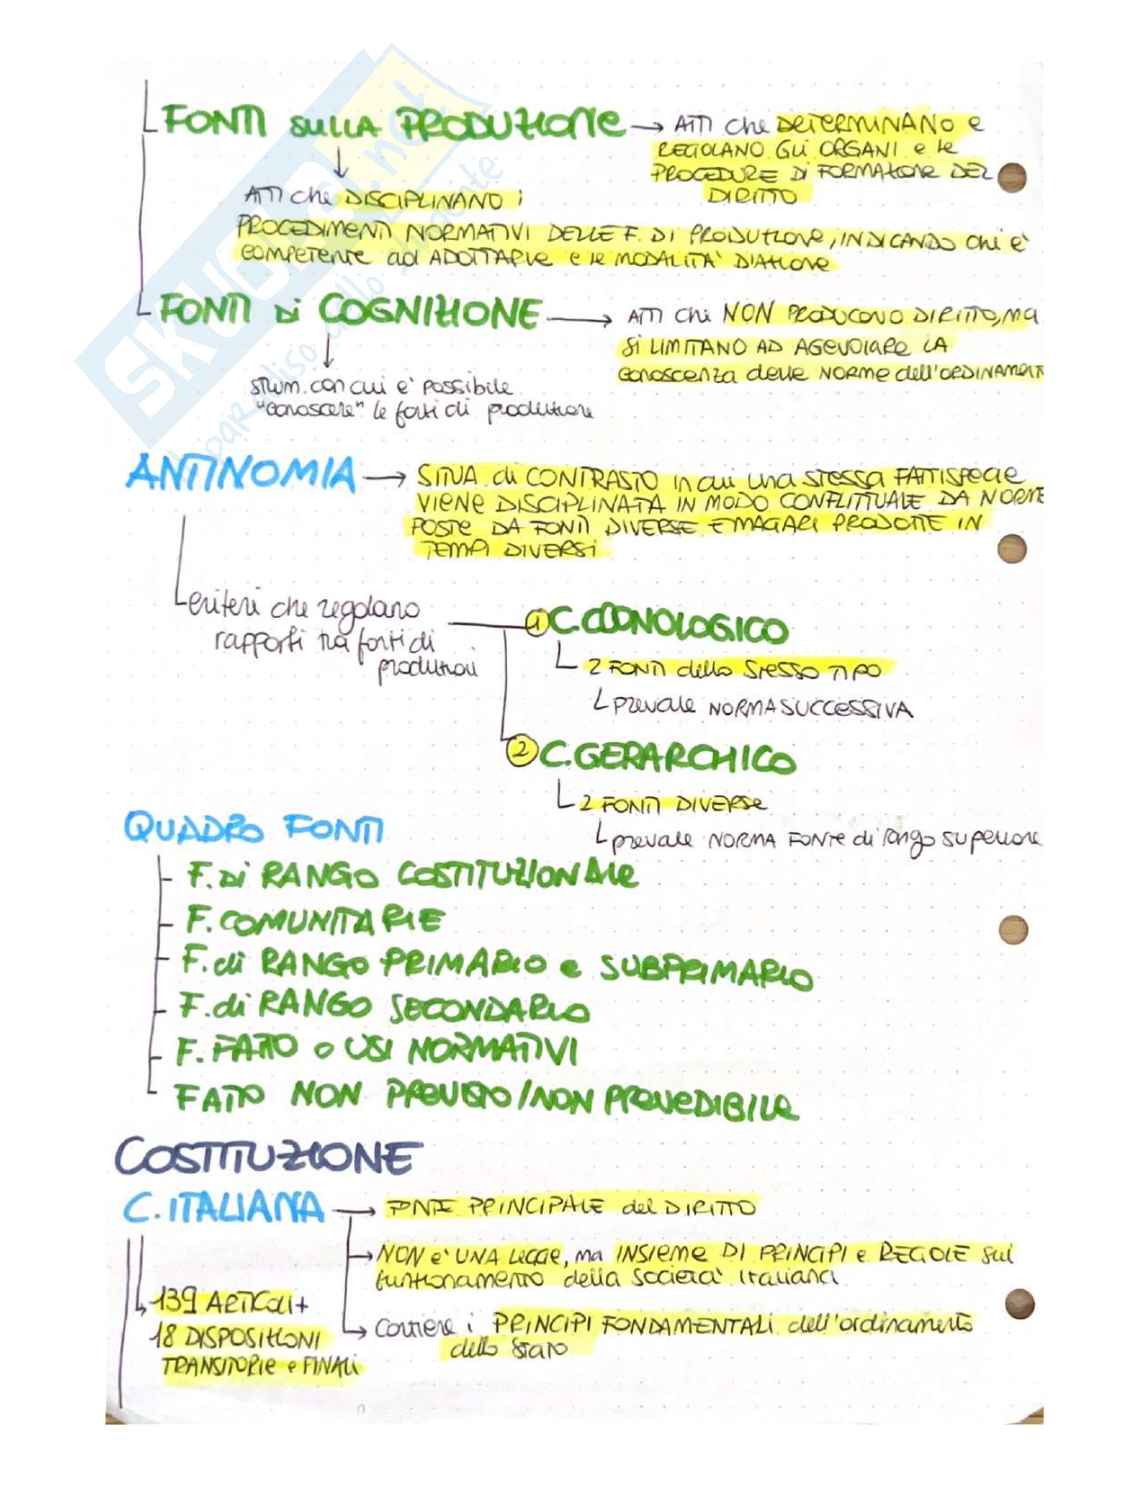 FONTI SULLA PRODUZIONE → ATTI che DETERMINANO e
REGOLANO GLI ORGANI e le
PROCEDURE DI FORMAZIONE DEL
DIRITTO
ATTI che DISCIPLINANO i
PROCEDIMENTI NORMATIVI DELLE F. DI PRODUZIONE, INDICANDO chi è
competente ad ADOTTARLE e le MODALITÀ D'AZIONE
FONTI DI COGNIZIONE → ATTI chi NON PRODUCONO DIRITTO, MA
SI LIMITANO AD AGEVOLARE LA
conoscenza delle NORME dell'ORDINAMENT
strum. con cui è possibile
"conoscere" le fonti di produzione
ANTINOMIA → SITUA. di CONTRASTO in cui una STESSA FATTISPECIE
VIENE DISCIPLINATA IN MODO CONFLITTUALE DA NORME
POSTE DA FONTI DIVERSE E MAGARI PRODOTTE IN
TEMPI DIVERSI
criteri che regolano
rapporti tra fonti di
produzioni
1 C. CRONOLOGICO
2 FONTI dello STESSO TIPO
prevale NORMA SUCCESSIVA
2 C. GERARCHICO
2 FONTI DIVERSE
prevale NORMA FONTE di rango superiore
QUADRO FONTI
F. DI RANGO COSTITUZIONALE
F. COMUNITARIE
F. di RANGO PRIMARIO e SUBPRIMARIO
F. di RANGO SECONDARIO
F. FATTO O USI NORMATIVI
FATTO NON PREVISTO/NON PREVEDIBILE
COSTITUZIONE
C. ITALIANA → FONTE PRINCIPALE del DIRITTO
NON è UNA LEGGE, ma INSIEME DI PRINCIPI e REGOLE sul
funzionamento della società italiana
139 ARTICOLI +
18 DISPOSIZIONI
TRANSITORIE e FINALI
Contiene i PRINCIPI FONDAMENTALI dell'ordinamento
dello Stato
SKUOLA.net
il paradiso dello studente